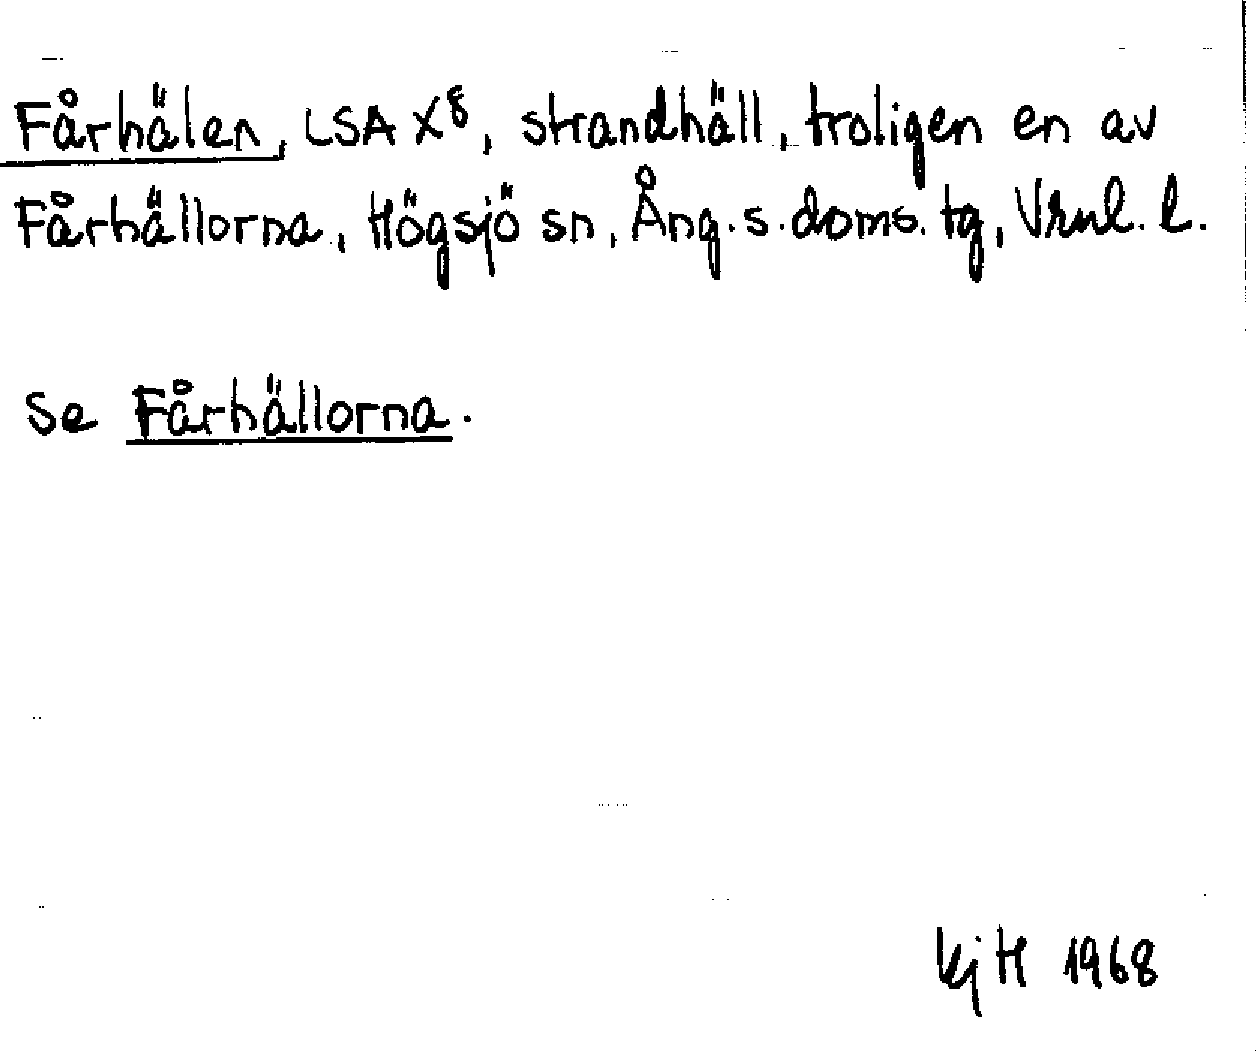 Fårhälen, LSA X⁸, strandhäll, troligen en av
Fårhällorna, Högsjö sn, Ång. s. doms. tg, Vrnl. l.
se Fårhällorna.
KjH 1968